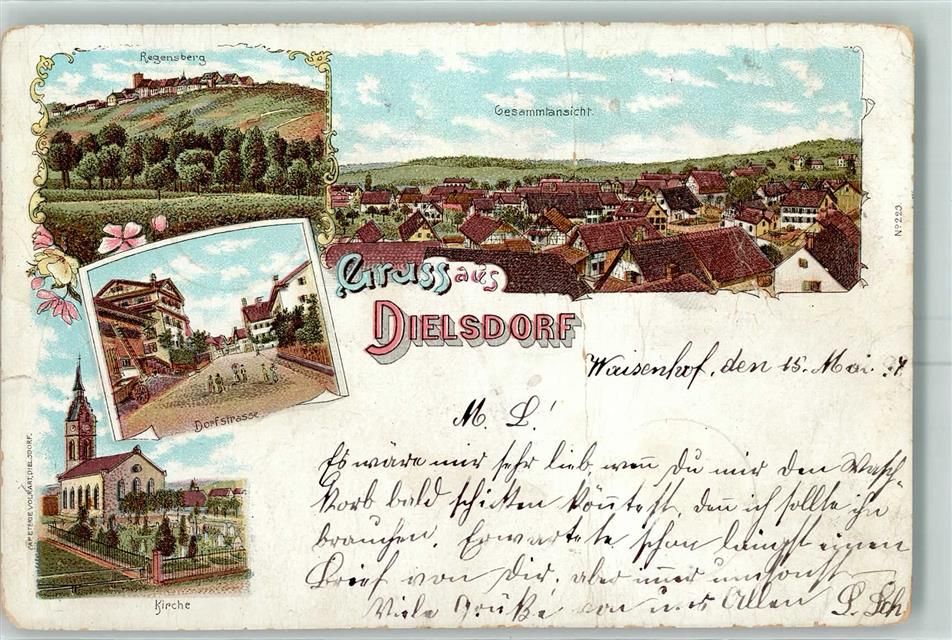 Regensberg
Gesammtansicht.
No 223.
Gruss aus
DIELSDORF
Dorfstrasse
Kirche
PAPETERIE VOLKART, DIELSDORF.
Waisenhof, den 15. Mai 97
M. L!
Es wäre mir sehr lieb wenn Du mir den Wasch-
korb bald schikken könntest, den ich sollte ihn
brauchen. Erwartete schon längst einen
Brief von Dir, aber immer umsonst
Viele Grüße von uns Allen P. Sch